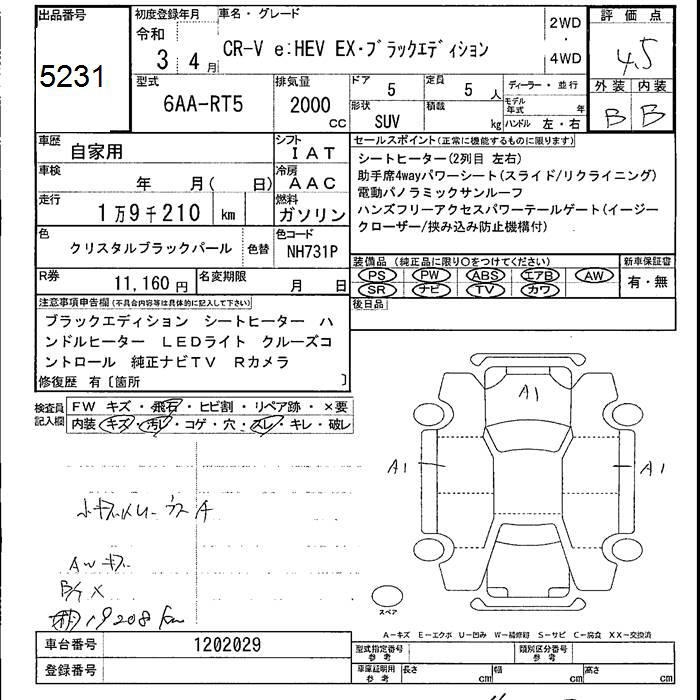 出品番号
5231
初度登録年月
令和
3年 4月
車名・グレード
CR-V e:HEV EX・ブラックエディション
2WD
・
4WD
評価点
4.5
外装 内装
B B
型式
6AA-RT5
排気量
2000
CC
ドア
5
定員
5人
形状
SUV
積載
kg
ディーラー・並行
モデル年式 年
ハンドル 左・右
車歴
自家用
シフト
IAT
車検
年 月( 日)
冷房
AAC
走行
1万9千210 km
燃料
ガソリン
色
クリスタルブラックパール
色替
色コード
NH731P
R券
11,160円
名変期限
月 日
セールスポイント(正常に機能するものに限ります)
シートヒーター(2列目 左右)
助手席4wayパワーシート(スライド/リクライニング)
電動パノラミックサンルーフ
ハンズフリーアクセスパワーテールゲート(イージー
クローザー/挟み込み防止機構付)
装備品(純正品に限り○をつけてください)
PS PW ABS エアB AW
SR ナビ TV カワ
新車保証書
有・無
後日品
注意事項申告欄(不具合内容等は具体的に記入して下さい)
ブラックエディション シートヒーター ハ
ンドルヒーター LEDライト クルーズコ
ントロール 純正ナビTV Rカメラ
修復歴 有〔箇所 〕
検査員
記入欄
FW キズ・飛石・ヒビ割・リペア跡・×要
内装 キズ・汚レ・コゲ・穴・スレ・キレ・破レ
A1
A1
A1
AWキズ
19208km
スペア
A-キズ E-エクボ U-凹み W-補修跡 S-サビ C-腐食 XX-交換済
車台番号
1202029
登録番号
型式指定番号
参考
類別区分番号
参考
車庫証明用
参考
長さ cm
幅 cm
高さ cm